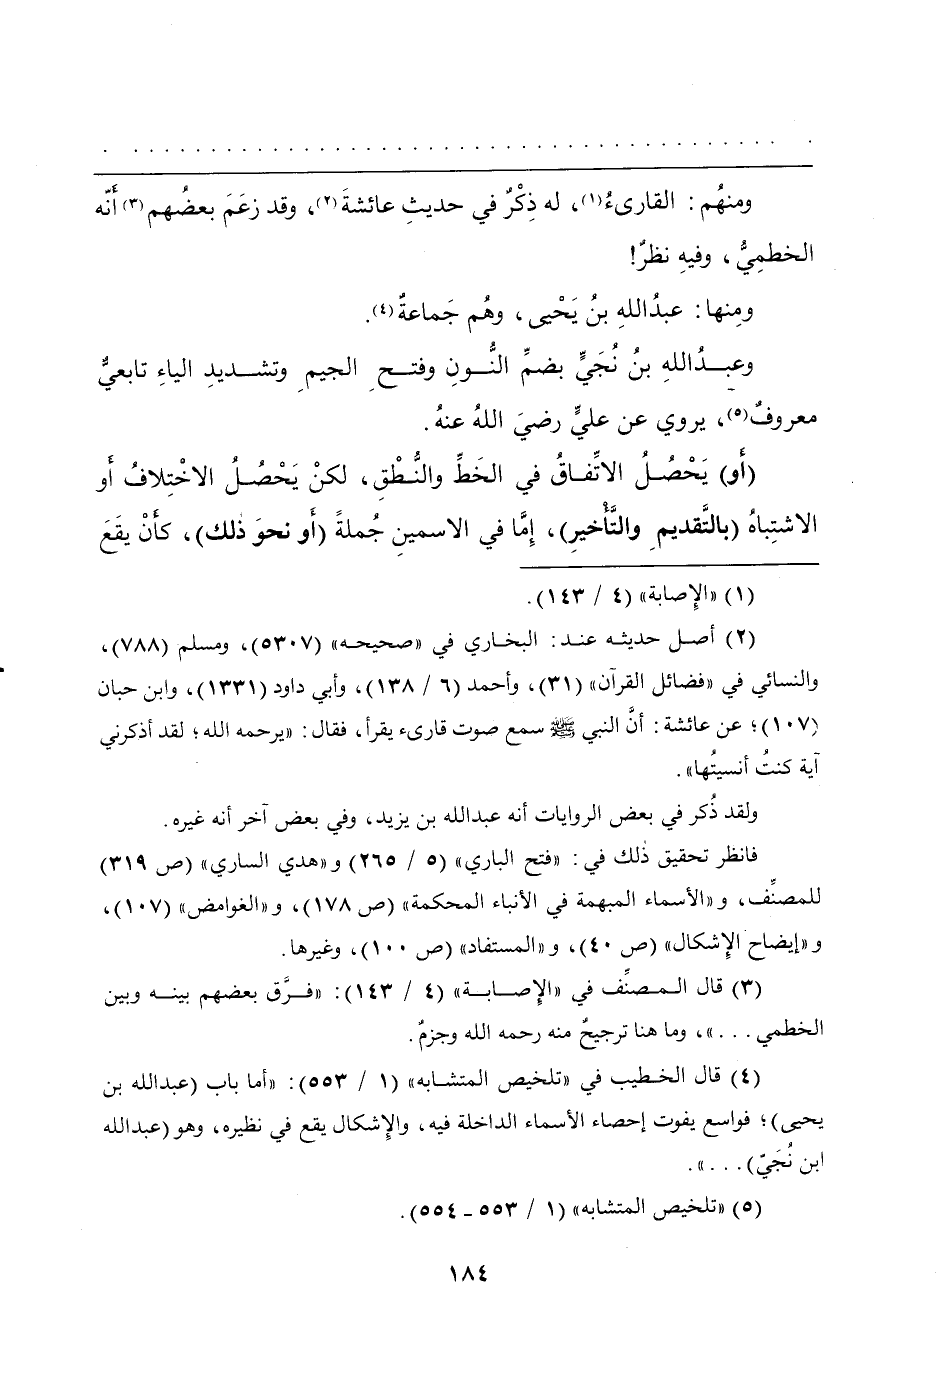 ومنهُم: القارىءُ(١)، له ذِكْرٌ في حديثِ عائشةَ(٢)، وقد زعَمَ بعضُهم(٣) أَنَّه
الخطمِيُّ، وفيهِ نظرٌ!
ومِنها: عبدُاللهِ بنُ يَحْيى، وهُم جَماعةٌ(٤).
وعبـدُاللهِ بنُ نُجَيٍّ بضمِّ النُّـونِ وفتـحِ الجيمِ وتشـديدِ الياءِ تابعيٌّ
معروفٌ(٥)، يروي عن عليٍّ رضيَ اللهُ عنهُ.
(أَو) يَحْصُـلُ الاتِّفـاقُ في الخَطِّ والنُّـطْقِ، لكنْ يَحْصُـلُ الاخْتِلافُ أَو
الاشتِباهُ (بالتَّقديمِ والتَّأْخيرِ)، إِمَّا في الاسمينِ جُملةً (أَو نحوَ ذٰلك)، كأَنْ يقَعَ
(١) «الإصابة» (٤ / ١٤٣).
(٢) أصـل حديثـه عنـد: البخـاري في «صحيحـه» (٥٣٠٧)، ومسلم (٧٨٨)،
والنسائي في «فضائل القرآن» (٣١)، وأحمد (٦ / ١٣٨)، وأبي داود (١٣٣١)، وابن حبان
(١٠٧)؛ عن عائشة: أنَّ النبي ﷺ سمع صوت قارىء يقرأ، فقال: «يرحمه الله؛ لقد أذكرني
آية كنتُ أنسيتُها».
ولقد ذُكر في بعض الروايات أنه عبدالله بن يزيد، وفي بعض آخر أنه غيره.
فانظر تحقيق ذٰلك في: «فتح الباري» (٥ / ٢٦٥) و «هدي الساري» (ص ٣١٩)
للمصنِّف، و «الأسماء المبهمة في الأنباء المحكمة» (ص ١٧٨)، و «الغوامض» (١٠٧)،
و «إيضاح الإشكال» (ص ٤٠)، و «المستفاد» (ص ١٠٠)، وغيرها.
(٣) قال المـصنِّف في «الإصـابـة» (٤ / ١٤٣): «فـرَّق بعضهم بينـه وبين
الخطمي . . .»، وما هنا ترجيحٌ منه رحمه الله وجزمٌ.
(٤) قال الخـطيب في «تلخيص المتشـابه» (١ / ٥٥٣): «أما باب (عبدالله بن
يحيى)؛ فواسع يفوت إحصاء الأسماء الداخلة فيه، والإشكال يقع في نظيره، وهو (عبدالله
ابن نُجَيّ) . . .».
(٥) «تلخيص المتشابه» (١ / ٥٥٣ - ٥٥٤).
١٨٤